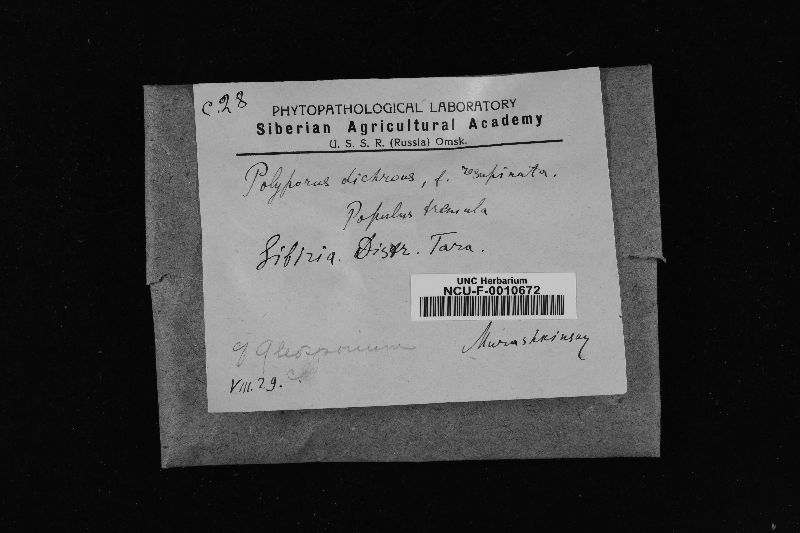 c.28
PHYTOPATHOLOGICAL LABORATORY
Siberian Agricultural Academy
U. S. S. R. (Russia) Omsk.
Polyporus dichrous, f. resupinata.
Populus tremula
Sibiria. Distr. Tara.
UNC Herbarium
NCU-F-0010672
Murashkinsky
VIII.29.